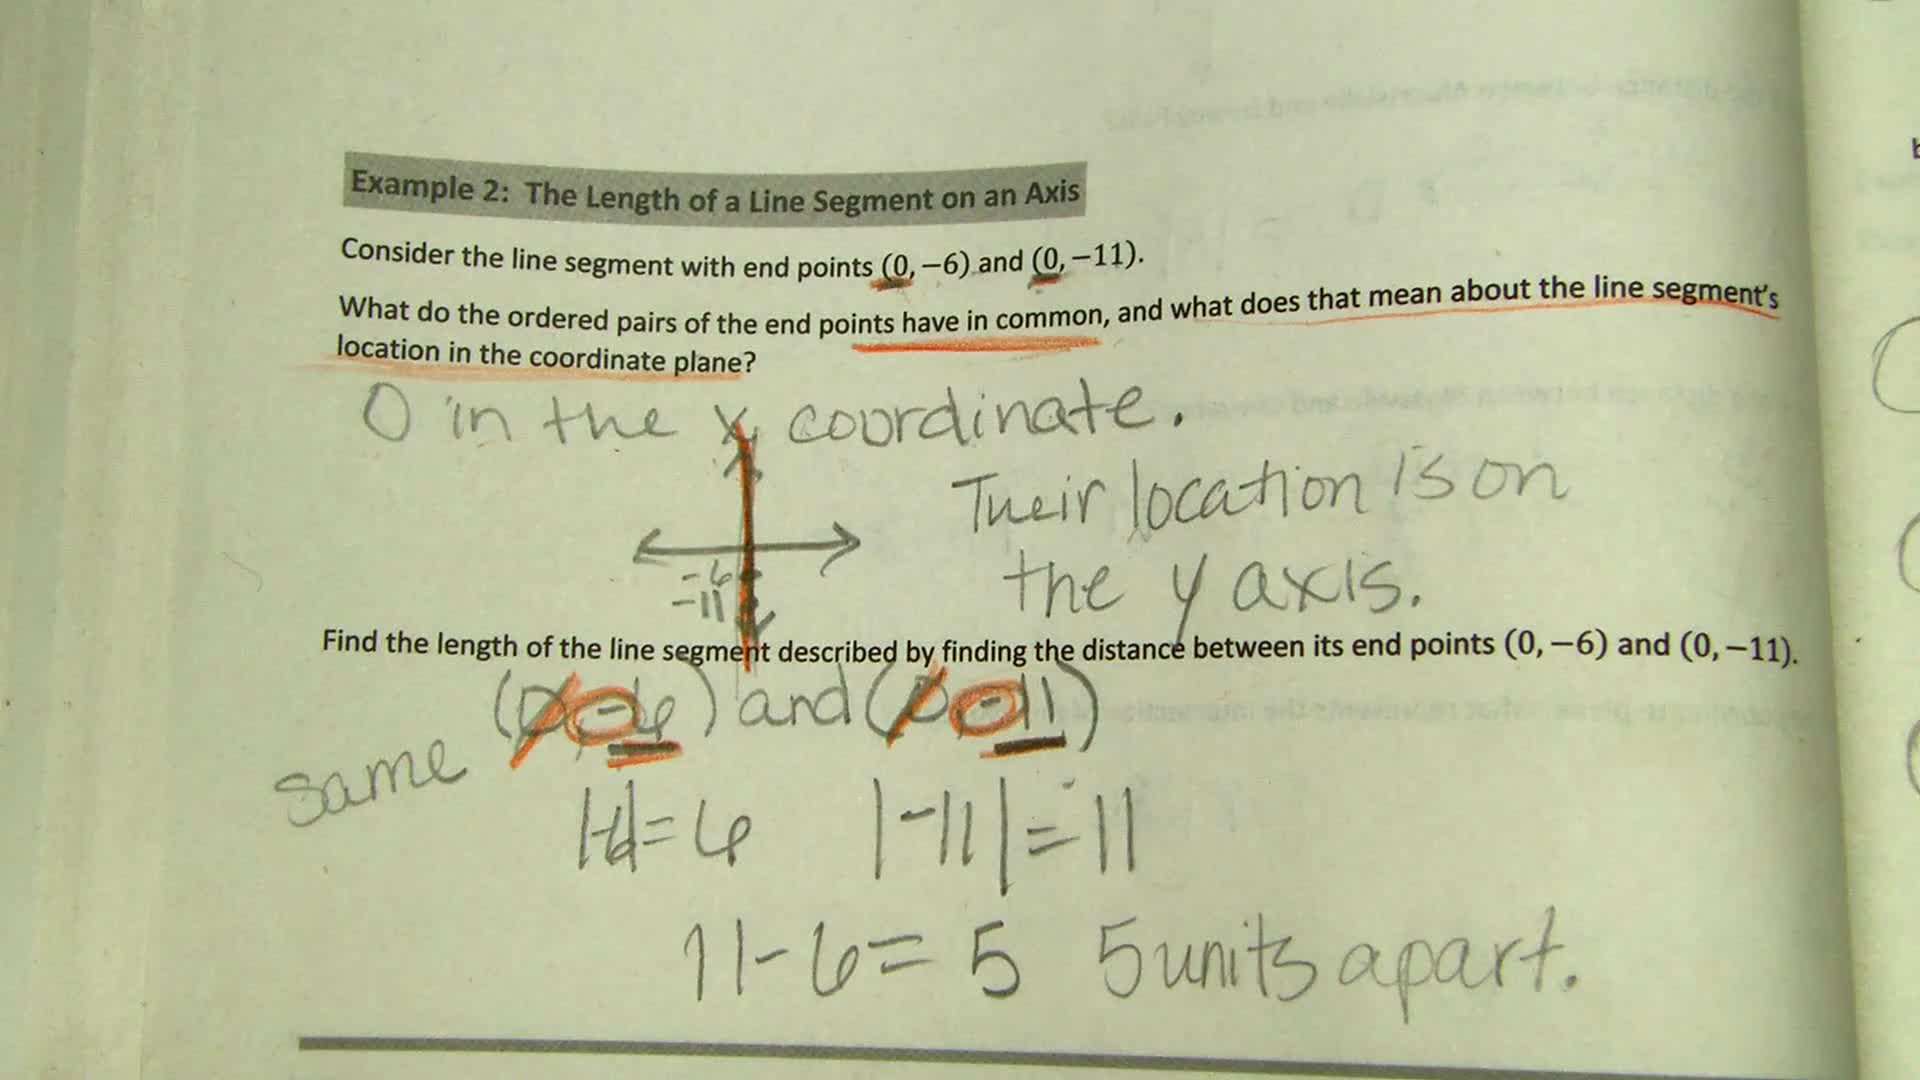 Example 2: The Length of a Line Segment on an Axis
Consider the line segment with end points (0, −6) and (0, −11).
What do the ordered pairs of the end points have in common, and what does that mean about the line segment's
location in the coordinate plane?
0 in the x coordinate.
Their location is on
the y axis.
-6
-11
Find the length of the line segment described by finding the distance between its end points (0, −6) and (0, −11).
(0, -6) and (0, -11)
same
|-6| = 6 |-11| = 11
11 - 6 = 5 5 units apart.